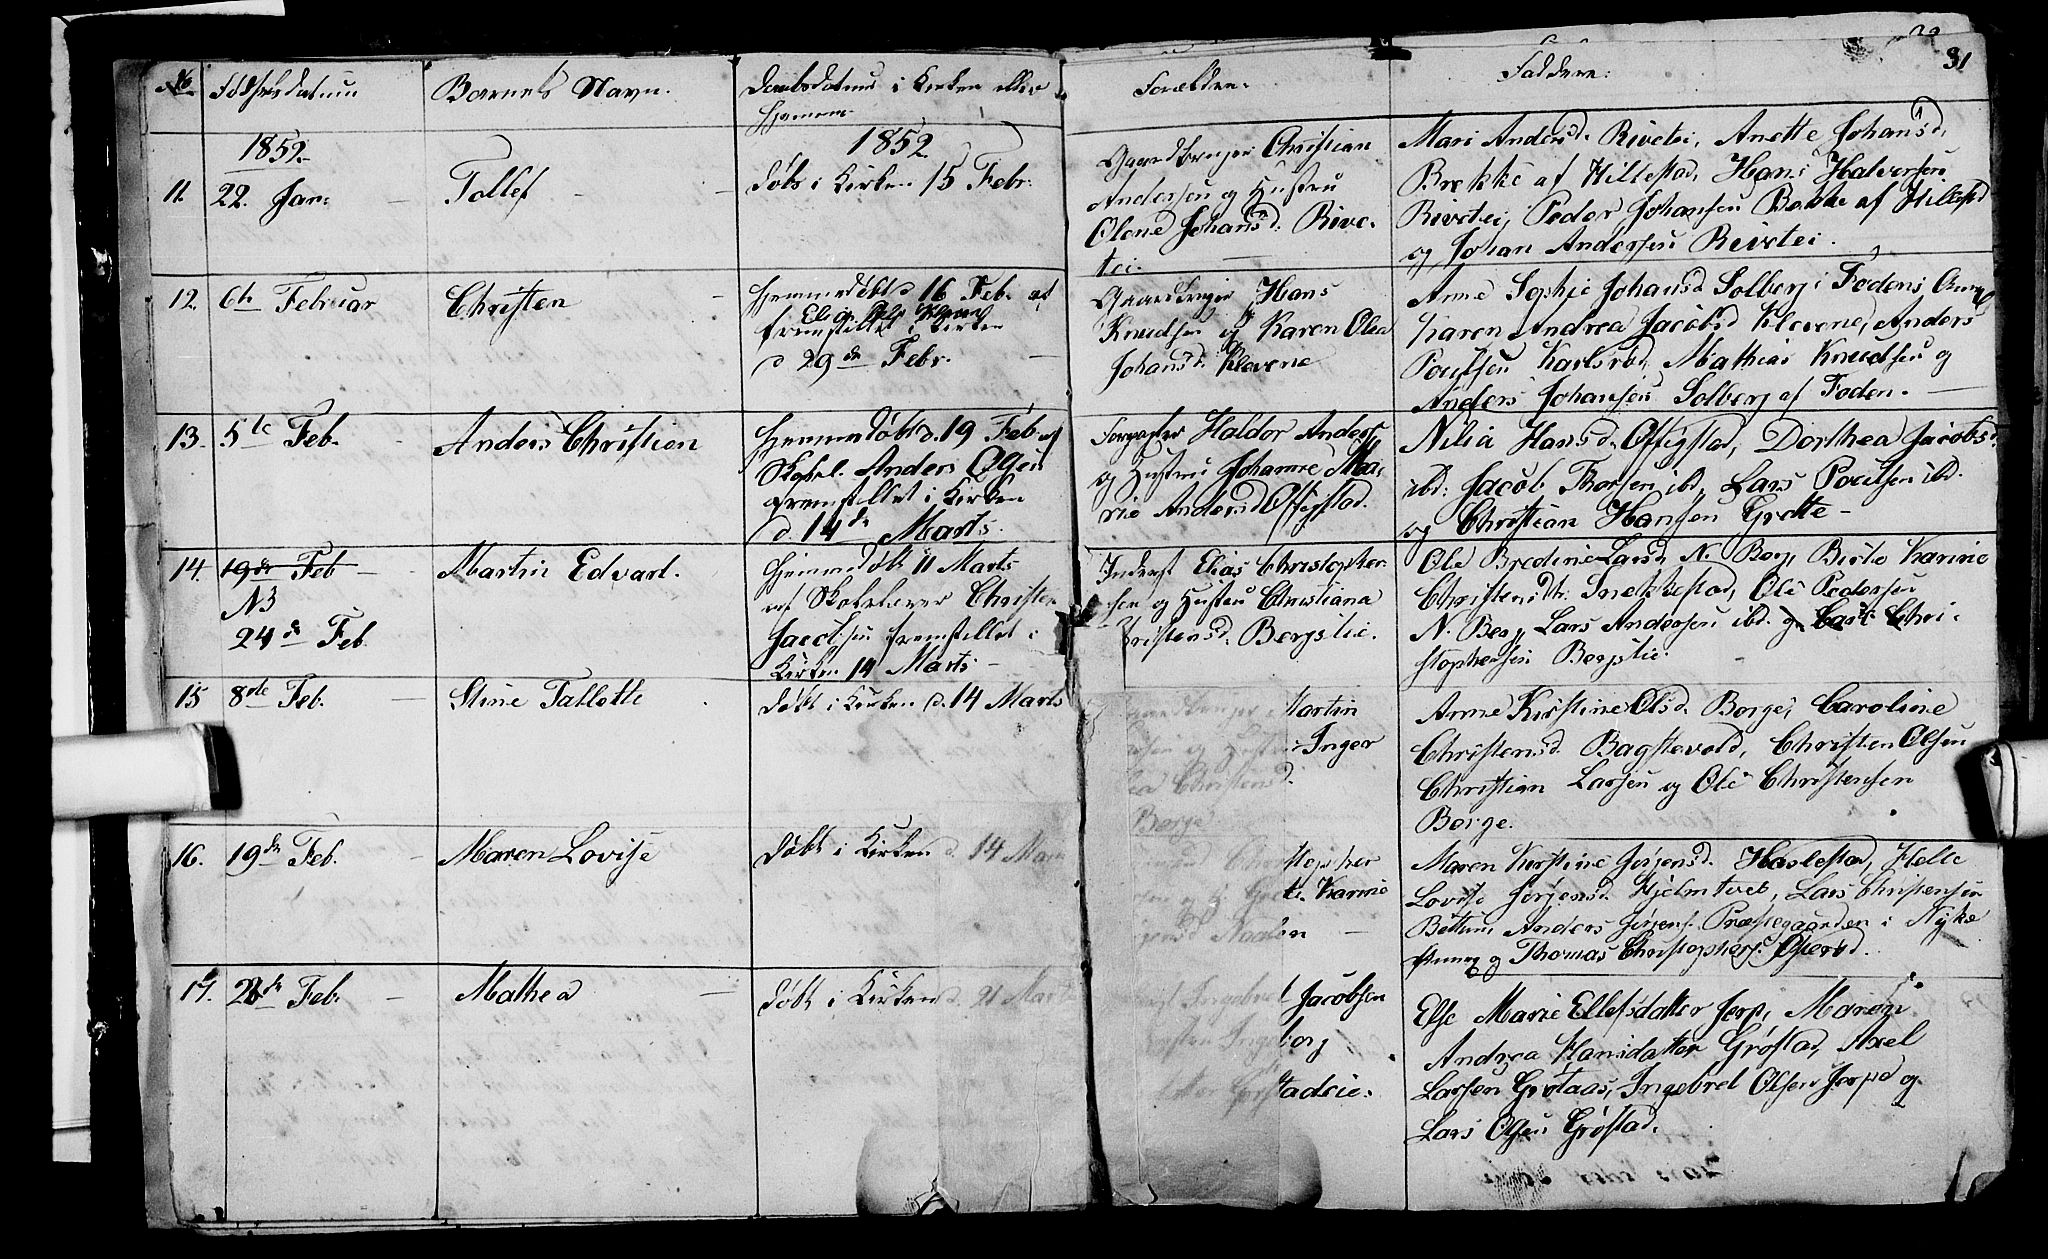 31
No Fødselsdatum Barnets Navn. Daabsdatum i Kirken eller Hjemme Forældre. Faddere.
1852. 1852.
11. 22. Jan: Tollef døbt i Kirken 15 Febr.
Gaardbruger Christian
Andersen og Hustru
Olene Johansd. Rive-
tei.
Mari Andersd. Rivetei, Anette Johansd.
Brekke af Hillestad, Hans Halvorsen
Rivetei, Peder Johansen Bekke af Hillestd
og Johan Andersen Rivetei.
12. 6te Februar Christen
Hjemmedøbt d. 16 Feb. af
fremstillet i Kirken
d. 29de Febr.
Gaardbruger Hans
Knudsen og Karen Olea
Johansd. Klevene
Anne Sophie Johansd Solberg i Fodens
Karen Andrea Jacobsd Klevene, Anders
Poulsen Karlsrød, Mathias Knudsen og
Anders Johansen Solberg af Foden.
13. 5te Feb. Anders Christian
Hjemmedøbt d. 19 Feb af
Skolel. Anders Olsen
fremstillet i Kirken
d. 14de Marts.
Forpagter Haldor Anders
og Hustru Johanne Ma-
rie Andersd Offigstad.
Nilia Hansd. Offigstad, Dorthea Jacobsd.
ibd. Jacob Thorsen ibd, Lars Poulsen ibd.
og Christian Hansen Grette
14. 19de Feb
NB
24de Feb. Martin Edvart.
Hjemmedøbt 11 Marts
af Skolelærer Christen
Jacobsen fremstillet i
Kirken 14 Marts
Inderst Elias Christopher-
sen og Hustru Christiana
Christensd. Bergslie.
Ole Bredine Larsd. N. Berg, Birte Karine
Christensdtr. Snekkestad, Ole Pedersen
N. Berg, Lars Andersen ibd. og Carl Chri-
stophersen Bergslie.
15 8de Feb. Stine Tallette døbt i Kirken d. 14 Marts
Gaardbruger Martin
og Hustru Inger
Christensd.
Borge.
Anne Kirstine Olsd. Borge, Caroline
Christensd. Bagstevold, Christen Olsen
Christian Larsen og Ole Christensen
Borge.
16. 19de Feb. Maren Lovise døbt i Kirken d. 14 Mar
stopher
Karine
Maren Kirstine Jørgensd. Haslestad, Helle
Lovise Jørgensd. Hjelmtvet, Lars Christensen
Bettum, Anders Jørgens. Præstegaarden i Nyke
og Thomas Christophers. Osterød.
17. 28de Feb. Mathea døbt i Kirken d. 21 Mart
Ingebret Jacobsen
Ingeborg
Elsdatter Grøstadeie.
Else Marie Ellefsdatter Jerp, Maren
Andrea Hansdatter Grøstad, Axel
Larsen Grøtaas, Ingebret Olsen Jerpe og
Lars Olsen Grøstad.